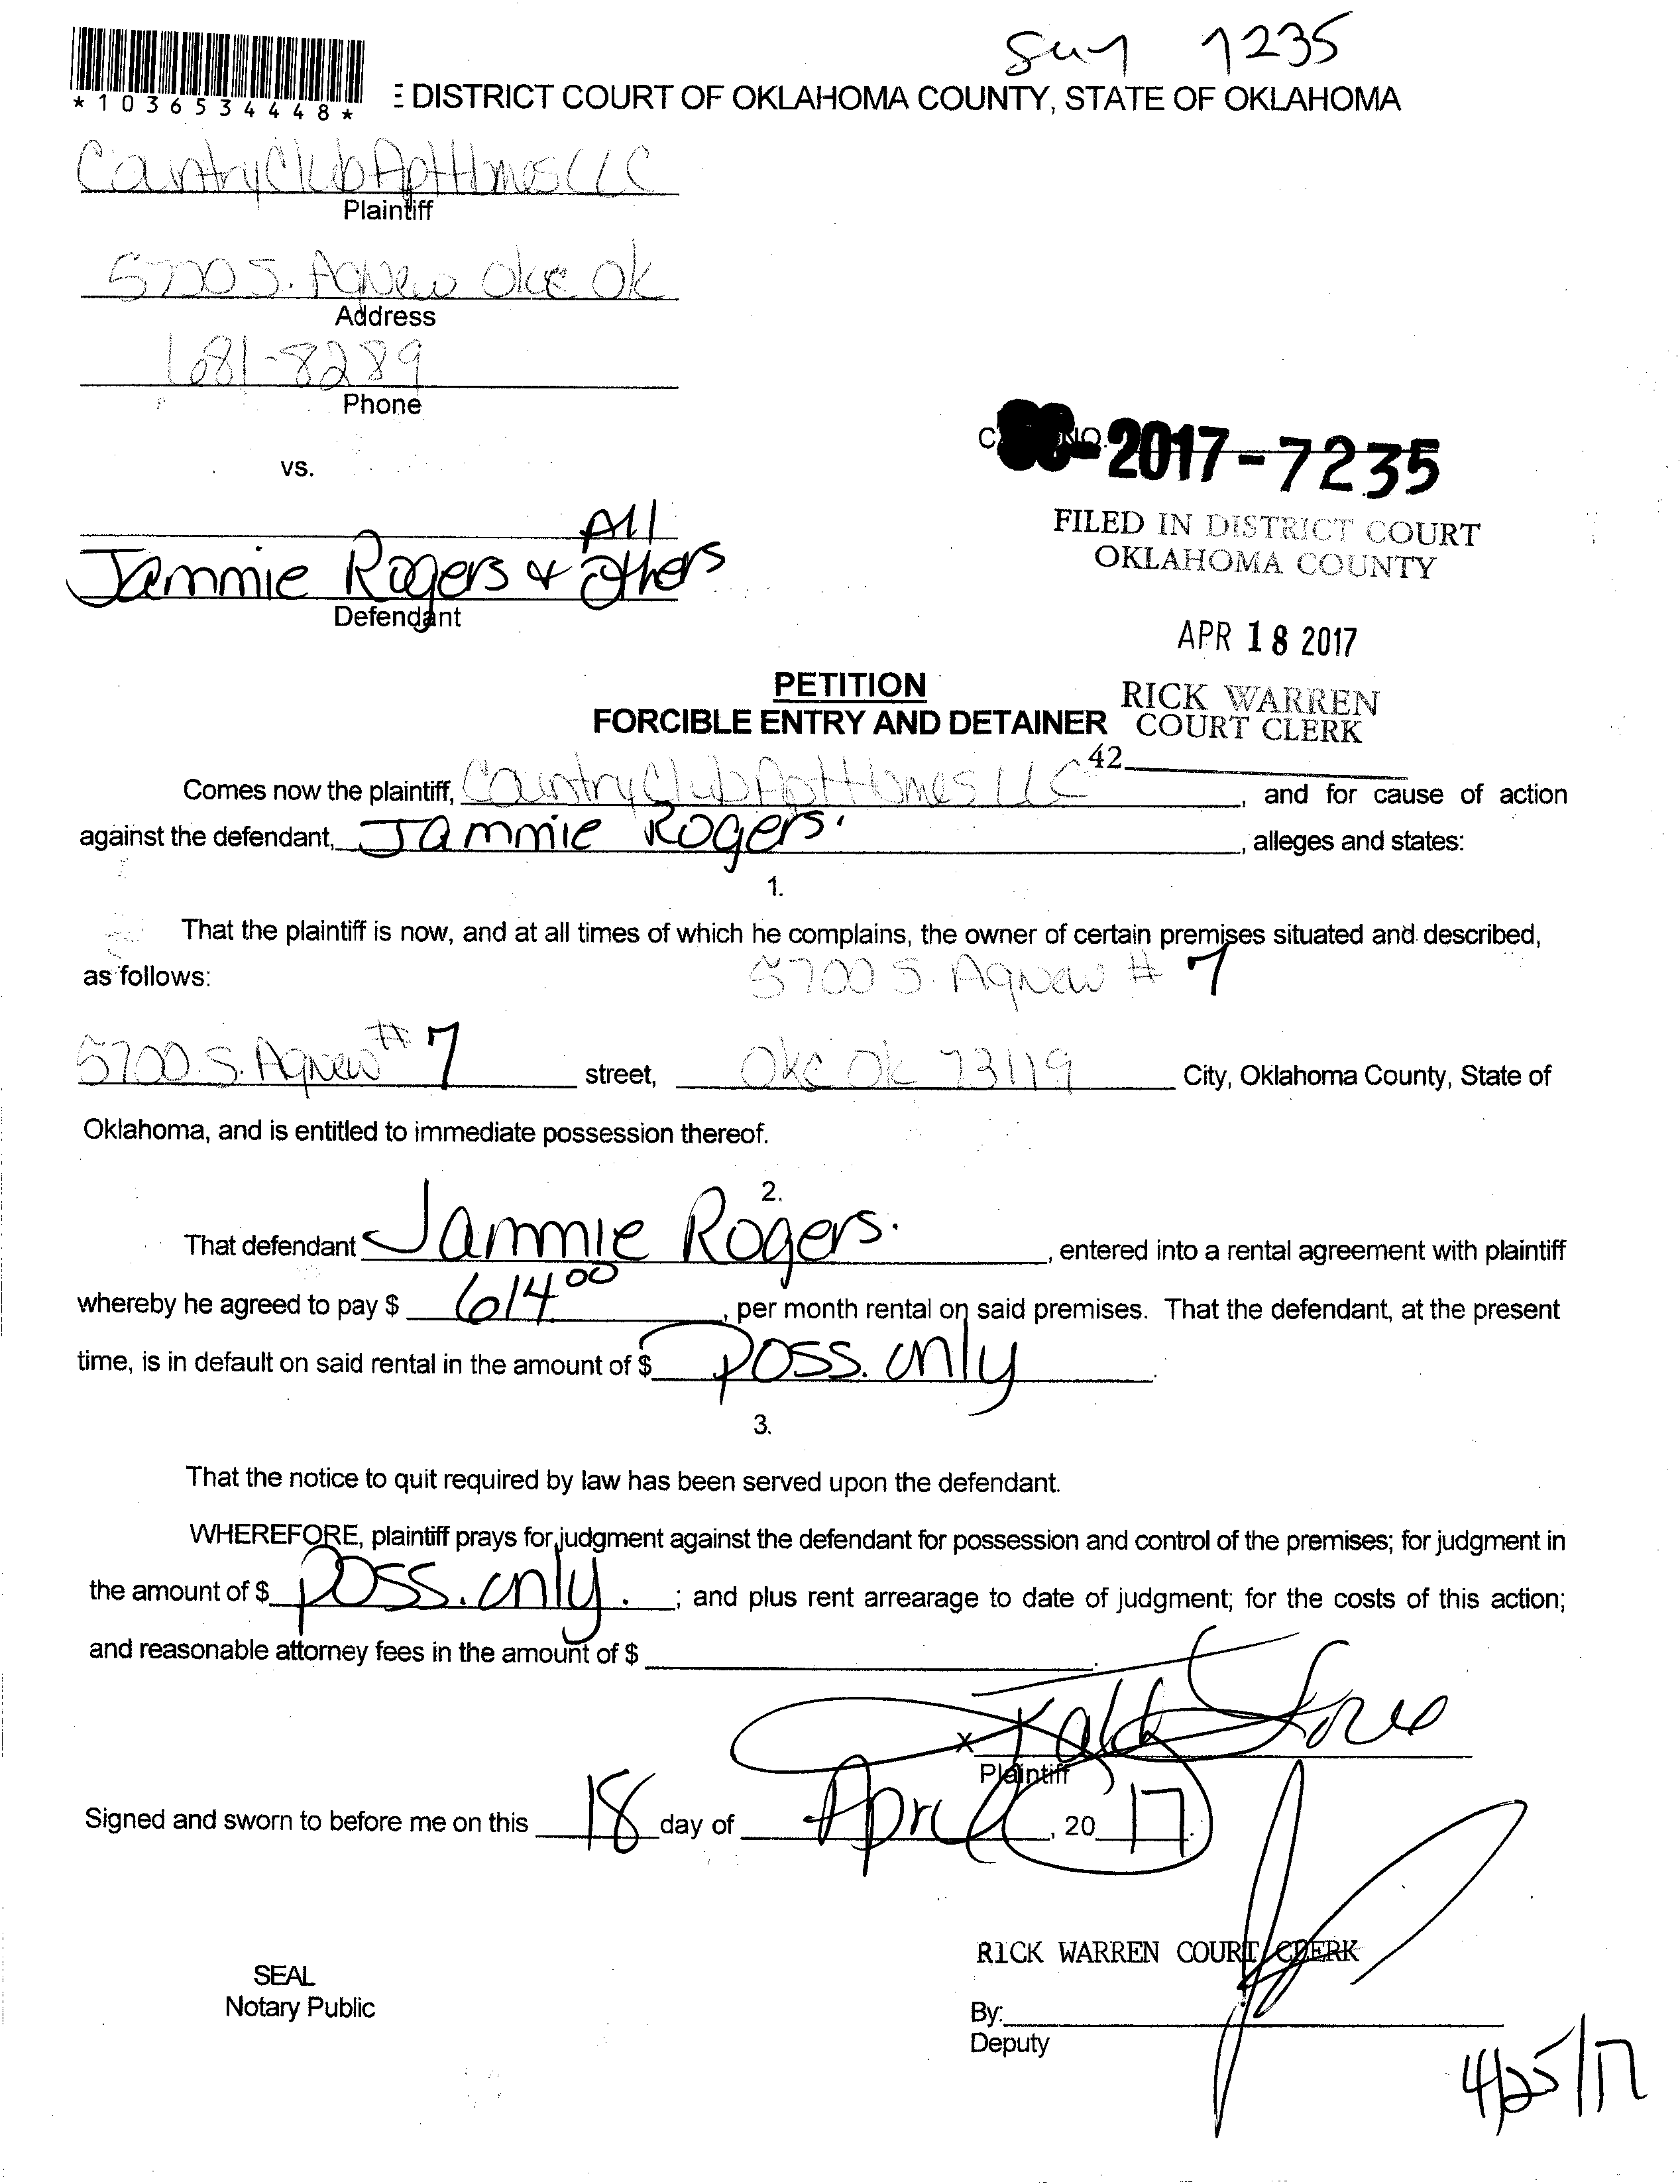 7235
*1036534448*
E DISTRICT COURT OF OKLAHOMA COUNTY, STATE OF OKLAHOMA
Country Club Apt Homes LLC
Plaintiff
5700 S. Agnew Okc Ok
Address
681-8289
Phone
vs.
-2017-7235
FILED IN DISTRICT COURT
OKLAHOMA COUNTY
All
Jammie Rogers & Others
Defendant
APR 18 2017
PETITION
RICK WARREN
FORCIBLE ENTRY AND DETAINER
COURT CLERK
42
Comes now the plaintiff, Country Club Apt Homes LLC, and for cause of action
against the defendant, Jammie Rogers, alleges and states:
1.
That the plaintiff is now, and at all times of which he complains, the owner of certain premises situated and described,
as follows: 5700 S. Agnew # 7
5700 S. Agnew # 7 street, Okc Ok 73119 City, Oklahoma County, State of
Oklahoma, and is entitled to immediate possession thereof.
2.
That defendant Jammie Rogers, entered into a rental agreement with plaintiff
whereby he agreed to pay $ 614.00, per month rental on said premises. That the defendant, at the present
time, is in default on said rental in the amount of $ Poss. only.
3.
That the notice to quit required by law has been served upon the defendant.
WHEREFORE, plaintiff prays for judgment against the defendant for possession and control of the premises; for judgment in
the amount of $ poss. only. ; and plus rent arrearage to date of judgment; for the costs of this action;
and reasonable attorney fees in the amount of $
x
Plaintiff
Signed and sworn to before me on this 18 day of April, 20 17.
RICK WARREN COURT CLERK
SEAL
Notary Public
By:
Deputy
4/25/17